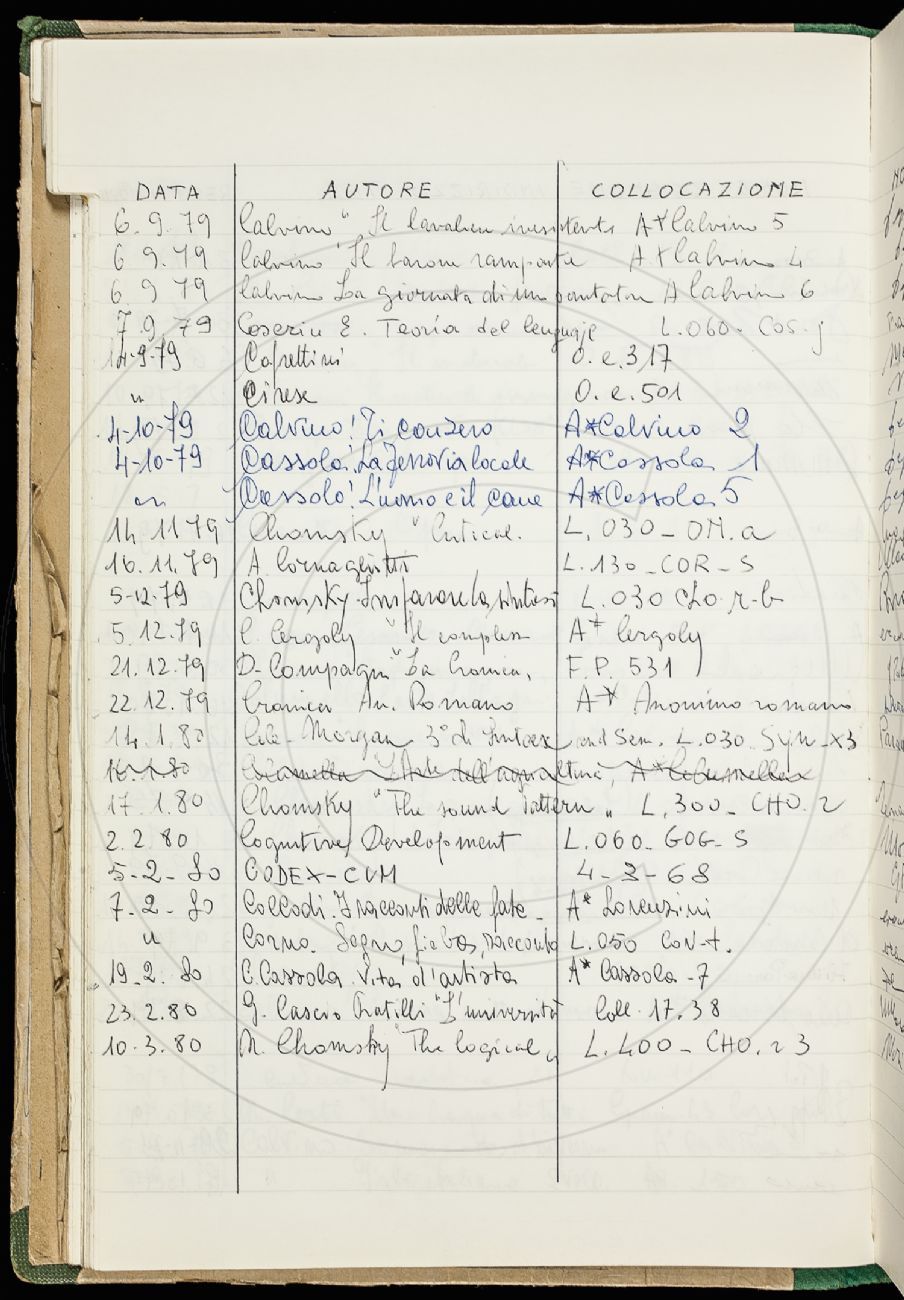 DATA AUTORE COLLOCAZIONE
6.9.79 Calvino "Il cavaliere inesistente A*Calvino 5
6 9.79 Calvino Il barone rampante A*Calvino 4
6.9 79 Calvino La giornata di uno A Calvino 6
7.9.79 Coseriu E. Teoría del lenguaje L.060- COS.j
14-9-79 Caprettini O.e.317
" Cirese O.e.501
4-10-79 Calvino! Ti con zero A*Calvino 2
4-10-79 Cassola! La ferrovia locale A*Cassola 1
" Cassola! L'uomo e il cane A*Cassola 5
14. 11 79 Chomsky " L. 030_OM.a
16.11.79 A. L.130_COR_S
5-12-79 Chomsky L.030 Cho.r-b
5.12.79 C. Cergoly "Il complesso A* Cergoly
21.12.79 D. Compagni "La Cronica, F.P. 531
22.12.79 Cronica An. Romano A* Anonimo romano
14.1.80 Cole-Morgan 3° di Syntax and Sem. L.030.Syn-x3
16.1.80
17.1.80 Chomsky "The sound Pattern" L.300_CHO.2
2.2 80 Cognitive Development L.060_GOG_S
5-2-80 CODEX-CVM 4-3-68
7-2-80 Collodi. I racconti delle fate_ A* Lorenzini
" Corno. Segno, fiaba, racconto L.050 Cor-t.
19_2.80 C.Cassola. Vita d'artista A* Cassola-7
23.2.80 G. Cascio Pratilli "L'università Coll. 17.38
10.3.80 N. Chomsky "The logical" L.400_CHO.r3